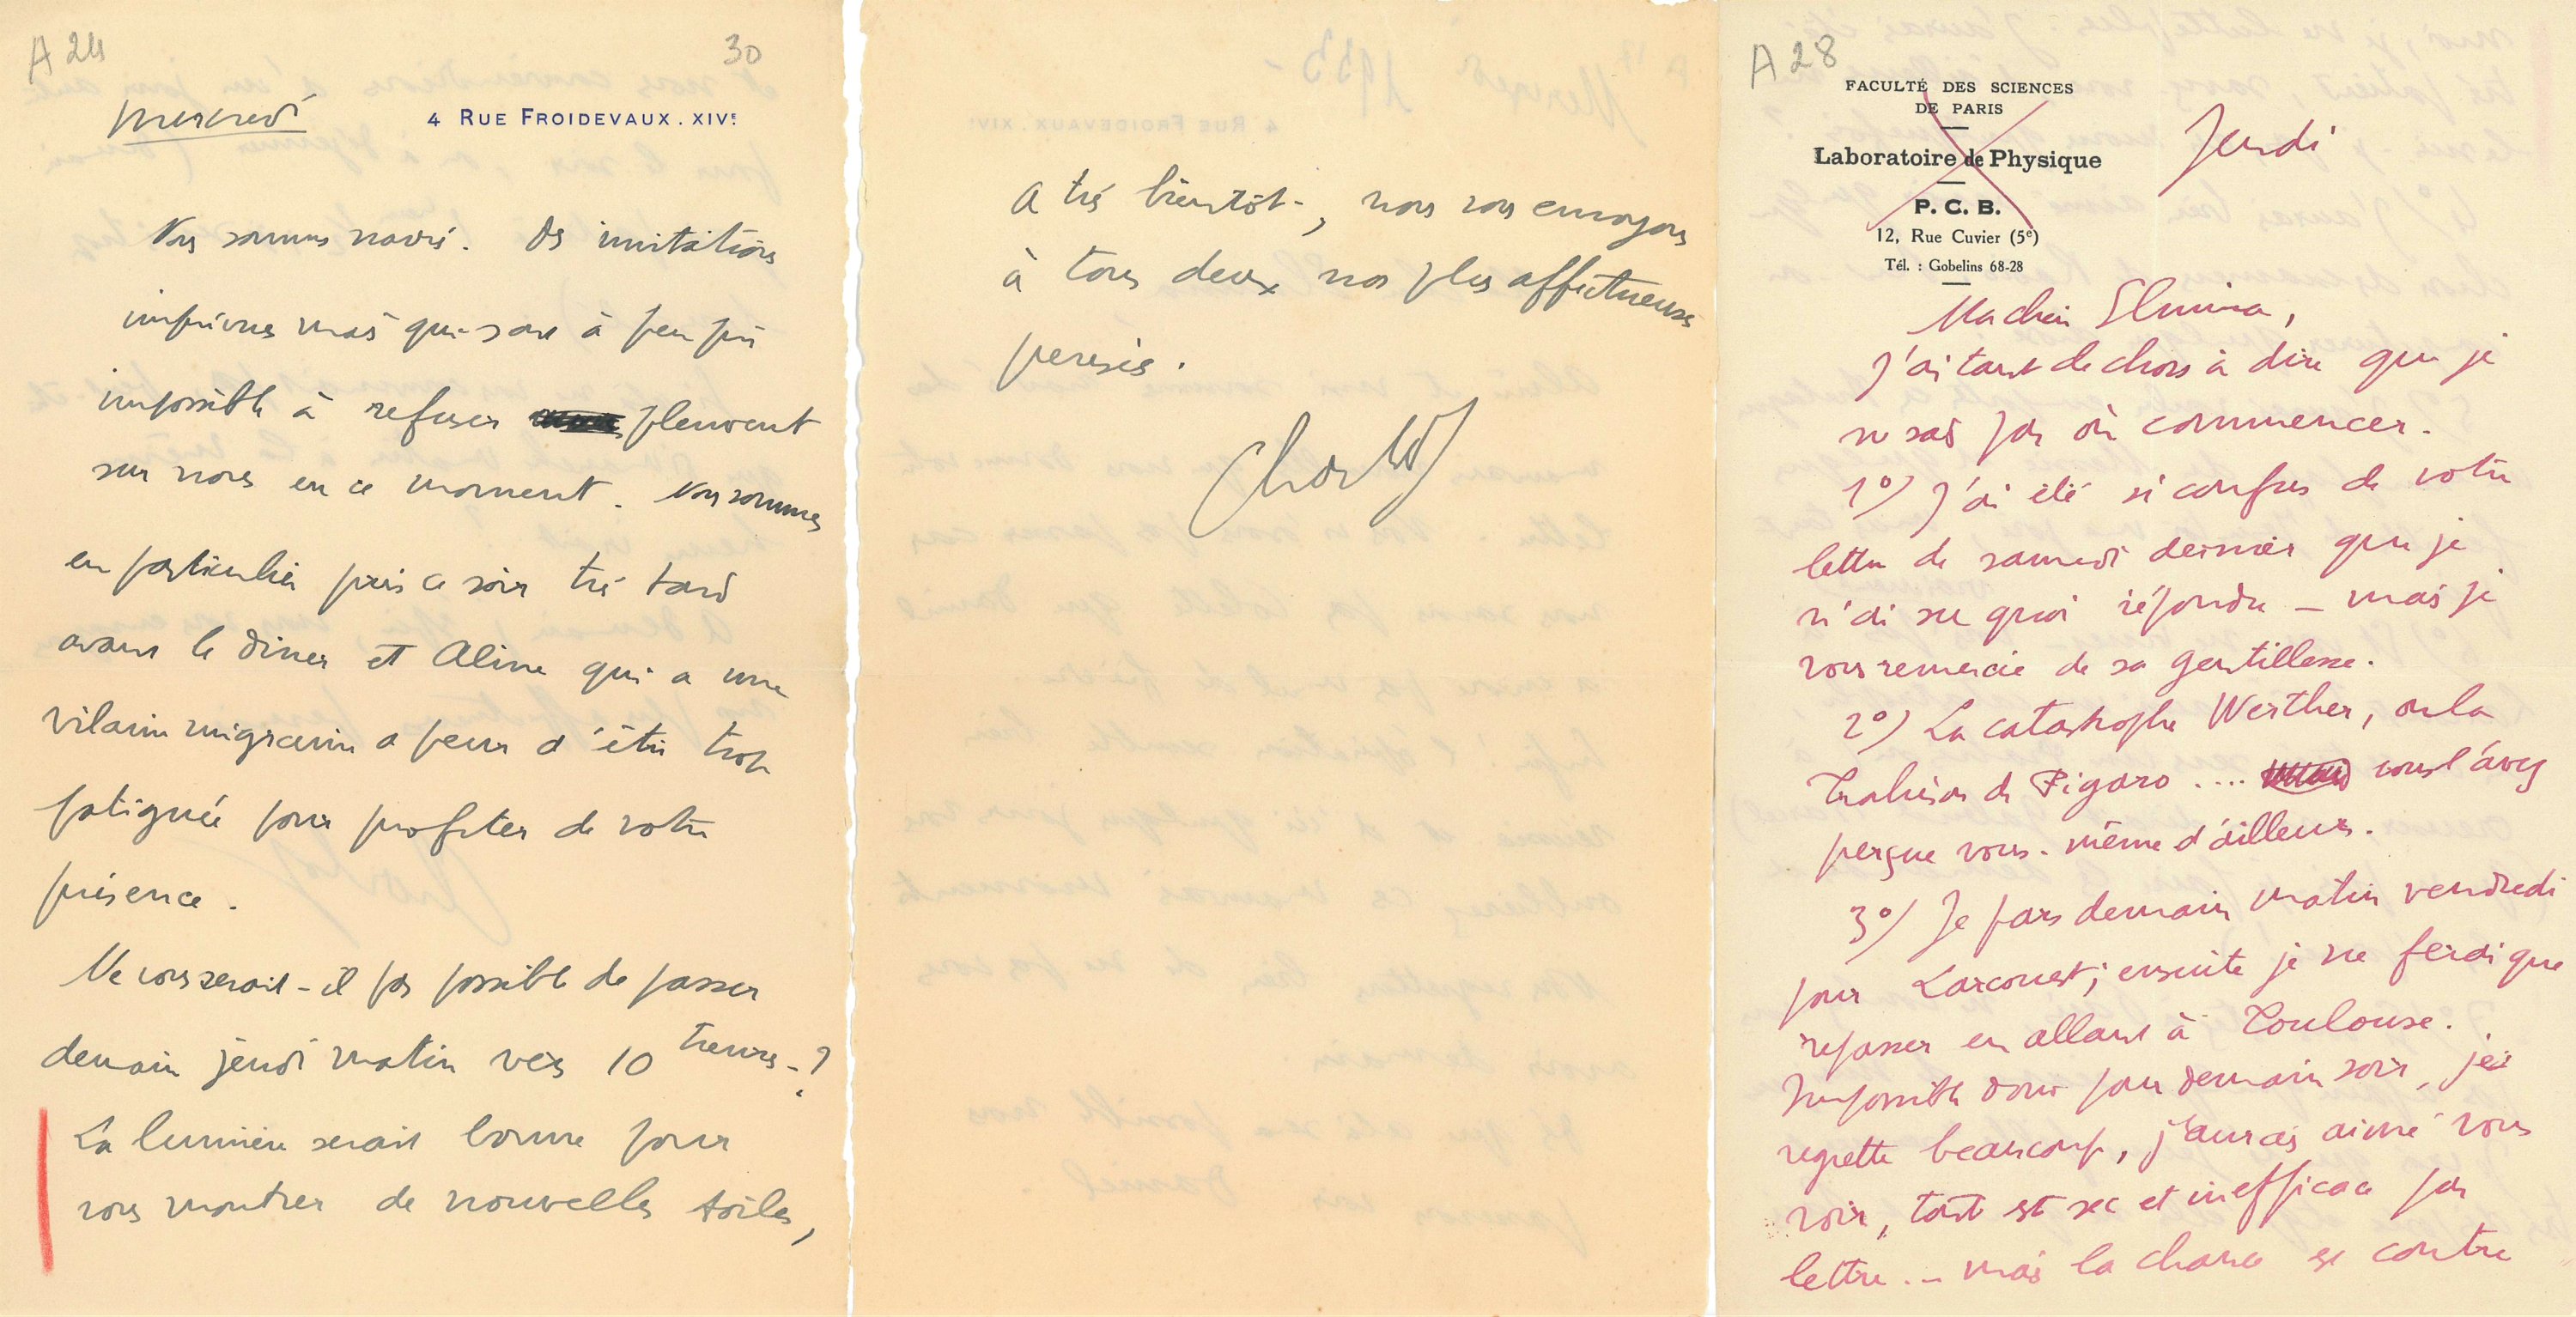 A 24
30
mercredi
4 RUE FROIDEVAUX. XIVE
Nous sommes navrés. Des invitations
imprévues mais qui sont à peu près
impossible à refuser pleuvent
sur nous en ce moment. Nous sommes
en particulier pris ce soir très tard
avant le dîner et Aline qui a une
vilaine migraine a peur d'être trop
fatiguée pour profiter de votre
présence.
Ne vous serait-il pas possible de passer
demain jeudi matin vers 10 heures-?
La lumière serait bonne pour
vous montrer de nouvelles toiles,
A très bientôt-, nous vous envoyons
à tous deux nos plus affectueuses
pensées.
A 28
FACULTÉ DES SCIENCES
DE PARIS
Laboratoire de Physique
P. C. B.
12, Rue Cuvier (5e)
Tél. : Gobelins 68-28
Jeudi
Ma chère
J'ai tant de choses à dire que je
ne sais pas où commencer.
1°) J'ai été si confus de votre
lettre de samedi dernier que je
n'ai su quoi répondre - mais je
vous remercie de sa gentillesse.
2°) La catastrophe Werther, ou la
trahison de Figaro .... vous l'avez
perçue vous-même d'ailleurs.
3°) Je pars demain matin vendredi
pour Larcouest; ensuite je ne ferai que
repasser en allant à Toulouse.
Impossible donc pour demain soir, je
regrette beaucoup, j'aurais aimé vous
voir, tout est sec et inefficace par
lettre.- mais la chance est contre